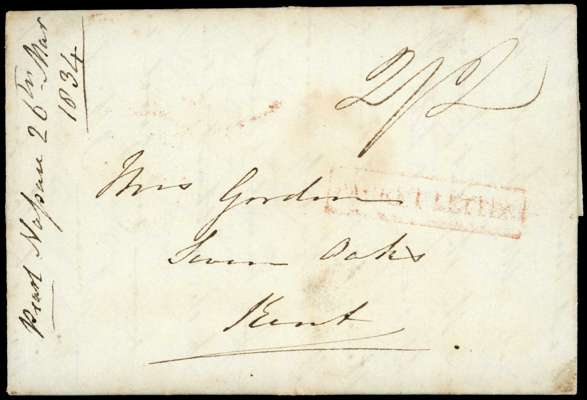 Pearl Nassau 26th Mar
1834
2/2
PACKET LETTER
Mrs Gordon
Seven Oaks
Kent